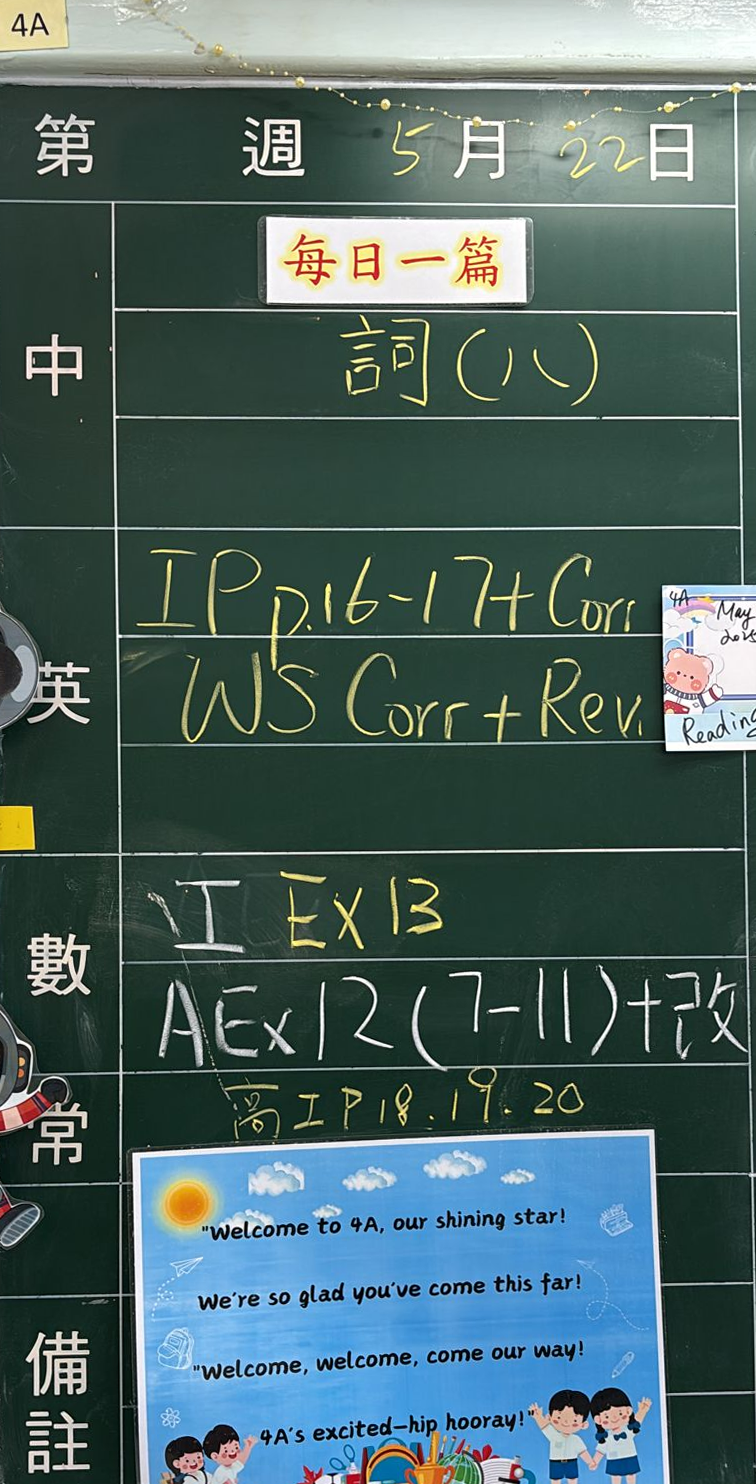 4A
第 週 5月 22日
每日一篇
中
詞(八)
IP p.16-17+ Corr
英
WS Corr + Rev.
4A
May
2025
Reading
工 Ex 13
數
AEx12(7-11)+改
常
高IP18.19.20
"Welcome to 4A, our shining star!
We're so glad you've come this far!
"Welcome, welcome, come our way!
4A's excited-hip hooray!"
備註